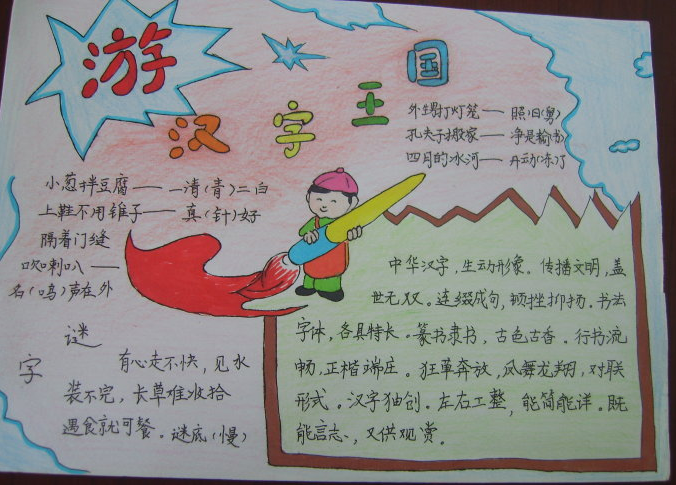 游
汉字王国
外甥打灯笼——照旧(舅)
孔夫子搬家——净是输(书)
四月的冰河——开动(冻)了
小葱拌豆腐——一清(青)二白
上鞋不用锥子——真(针)好
隔着门缝
吹喇叭——
名(鸣)声在外
字谜
有心走不快，见水
装不完，长草难收拾
遇食就可餐。谜底(慢)
中华汉字，生动形象。传播文明，盖
世无双。连缀成句，顿挫抑扬。书法
字体，各具特长。篆书隶书，古色古香。行书流
畅，正楷端庄。狂草奔放，凤舞龙翔，对联
形式。汉字独创。左右工整，能简能详。既
能言志、又供观赏。